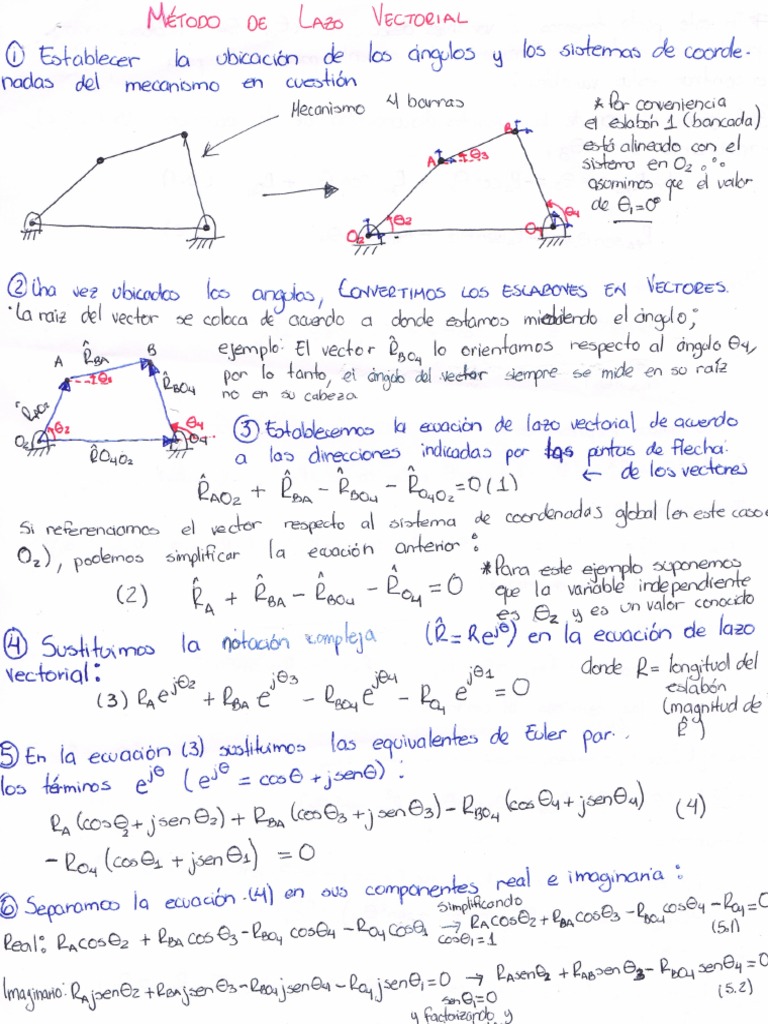 MÉTODO DE LAZO VECTORIAL
① Establecer la ubicación de los ángulos y los sistemas de coorde-
nadas del mecanismo en cuestión
Mecanismo 4 barras
* Por conveniencia
el eslabón 1 (bancada)
está alineado con el
sistema en O₂ ∴
asumimos que el valor
de θ₁=0°
A
θ₃
B
O₂
θ₂
O₄
θ₄
② Una vez ubicados los angulos, CONVERTIMOS LOS ESLABONES EN VECTORES.
·La raiz del vector se coloca de acuerdo a donde estamos midiendo el ángulo;
ejemplo: El vector R̂_BO₄ lo orientamos respecto al ángulo θ₄,
por lo tanto, el ángulo del vector siempre se mide en su raíz
no en su cabeza
A
R̂_BA
B
θ₃
R̂_AO₂
R̂_BO₄
O₂
θ₂
θ₄
O₄
R̂O₄O₂
③ Establecemos la ecuación de lazo vectorial de acuerdo
a las direcciones indicadas por las puntas de flecha.
← de los vectores
R̂_AO₂ + R̂_BA − R̂_BO₄ − R̂_O₄O₂ = 0 (1)
Si referenciamos el vector respecto al sistema de coordenadas global (en este caso
O₂), podemos simplificar la ecuación anterior :
(2) R̂_A + R̂_BA − R̂_BO₄ − R̂_O₄ = 0
*Para este ejemplo suponemos
que la variable independiente
es θ₂ y es un valor conocido
④ Sustituimos la notación compleja (R̂ = Re^jθ) en la ecuación de lazo
vectorial:
(3) R_A e^jθ₂ + R_BA e^jθ₃ − R_BO₄ e^jθ₄ − R_O₄ e^jθ₁ = 0
donde R = longitud del
eslabón
(magnitud de
R̂)
⑤ En la ecuación (3) sustituimos las equivalentes de Euler par..
los términos e^jθ (e^jθ = cosθ + jsenθ) :
R_A (cosθ₂ + jsenθ₂) + R_BA (cosθ₃ + jsenθ₃) − R_BO₄ (cosθ₄ + jsenθ₄)
(4)
− R_O₄ (cosθ₁ + jsenθ₁) = 0
⑥ Separamos la ecuación (4) en sus componentes real e imaginaria :
Real: R_A cosθ₂ + R_BA cosθ₃ − R_BO₄ cosθ₄ − R_O₄ cosθ₁ simplificando → cosθ₁=1 R_A cosθ₂ + R_BA cosθ₃ − R_BO₄ cosθ₄ − R_O₄ = 0
(5.1)
Imaginario: R_A jsenθ₂ + R_BA jsenθ₃ − R_BO₄ jsenθ₄ − R_O₄ jsenθ₁ = 0 → R_A senθ₂ + R_AB senθ₃ − R_BO₄ senθ₄ = 0
senθ₁=0
(5.2)
y factorizando y